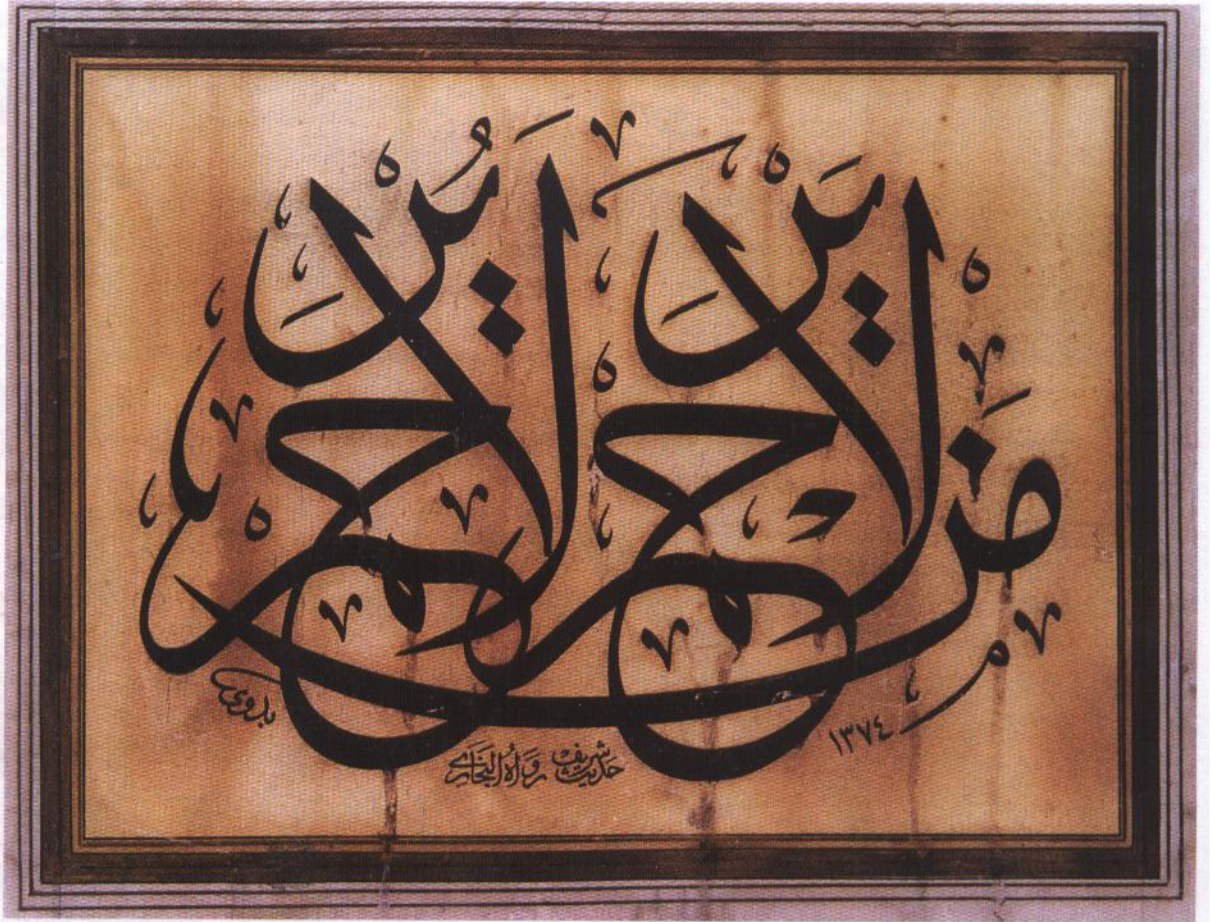 مَن لَا يَرْحَم لَا يُرْحَم
١٣٧٤
حديث شريف رَوَاهُ البُخَارِي
بدوي